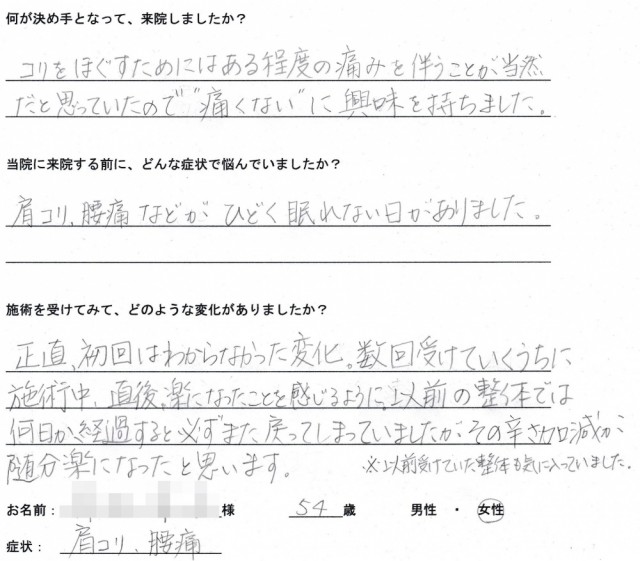 何が決め手となって、来院しましたか？
コリをほぐすためにはある程度の痛みを伴うことが当然
だと思っていたので“痛くない”に興味を持ちました。
当院に来院する前に、どんな症状で悩んでいましたか？
肩コリ、腰痛などがひどく眠れない日がありました。
施術を受けてみて、どのような変化がありましたか？
正直、初回はわからなかった変化。数回受けていくうちに
施術中、直後、楽になったことを感じるように。以前の整体では
何日か経過すると必ずまた戻ってしまっていましたがその辛さ加減が
随分楽になったと思います。 ※以前受けていた整体も気に入っていました。
お名前： 様 54 歳 男性 ・ 女性
症状： 肩コリ、腰痛